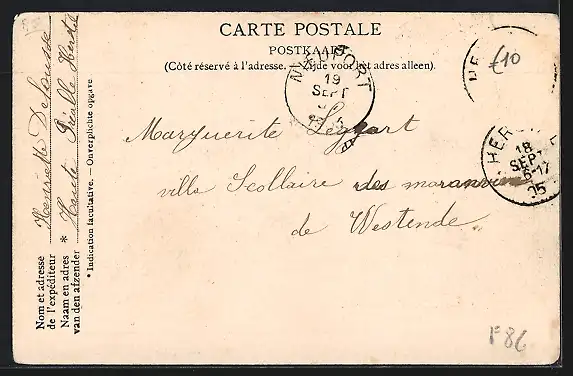 CARTE POSTALE
POSTKAART
(Côté réservé à l'adresse. — Zijde voor het adres alleen).
NIEUPORT
19
SEPT
HER
18
SEPT
6-17
05
£10
Marguerite
ville Scollaire des
de Westende
Nom et adresse
de l'expéditeur
Naam en adres *
van den afzender
Henriette
Haute Préalle Herstal
* Indication facultative. — Onverplichte opgave
F86